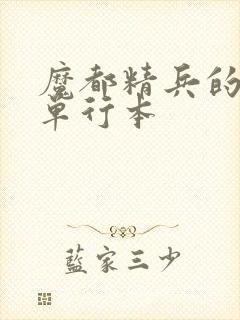 魔都精兵的
单行本
藍家三少